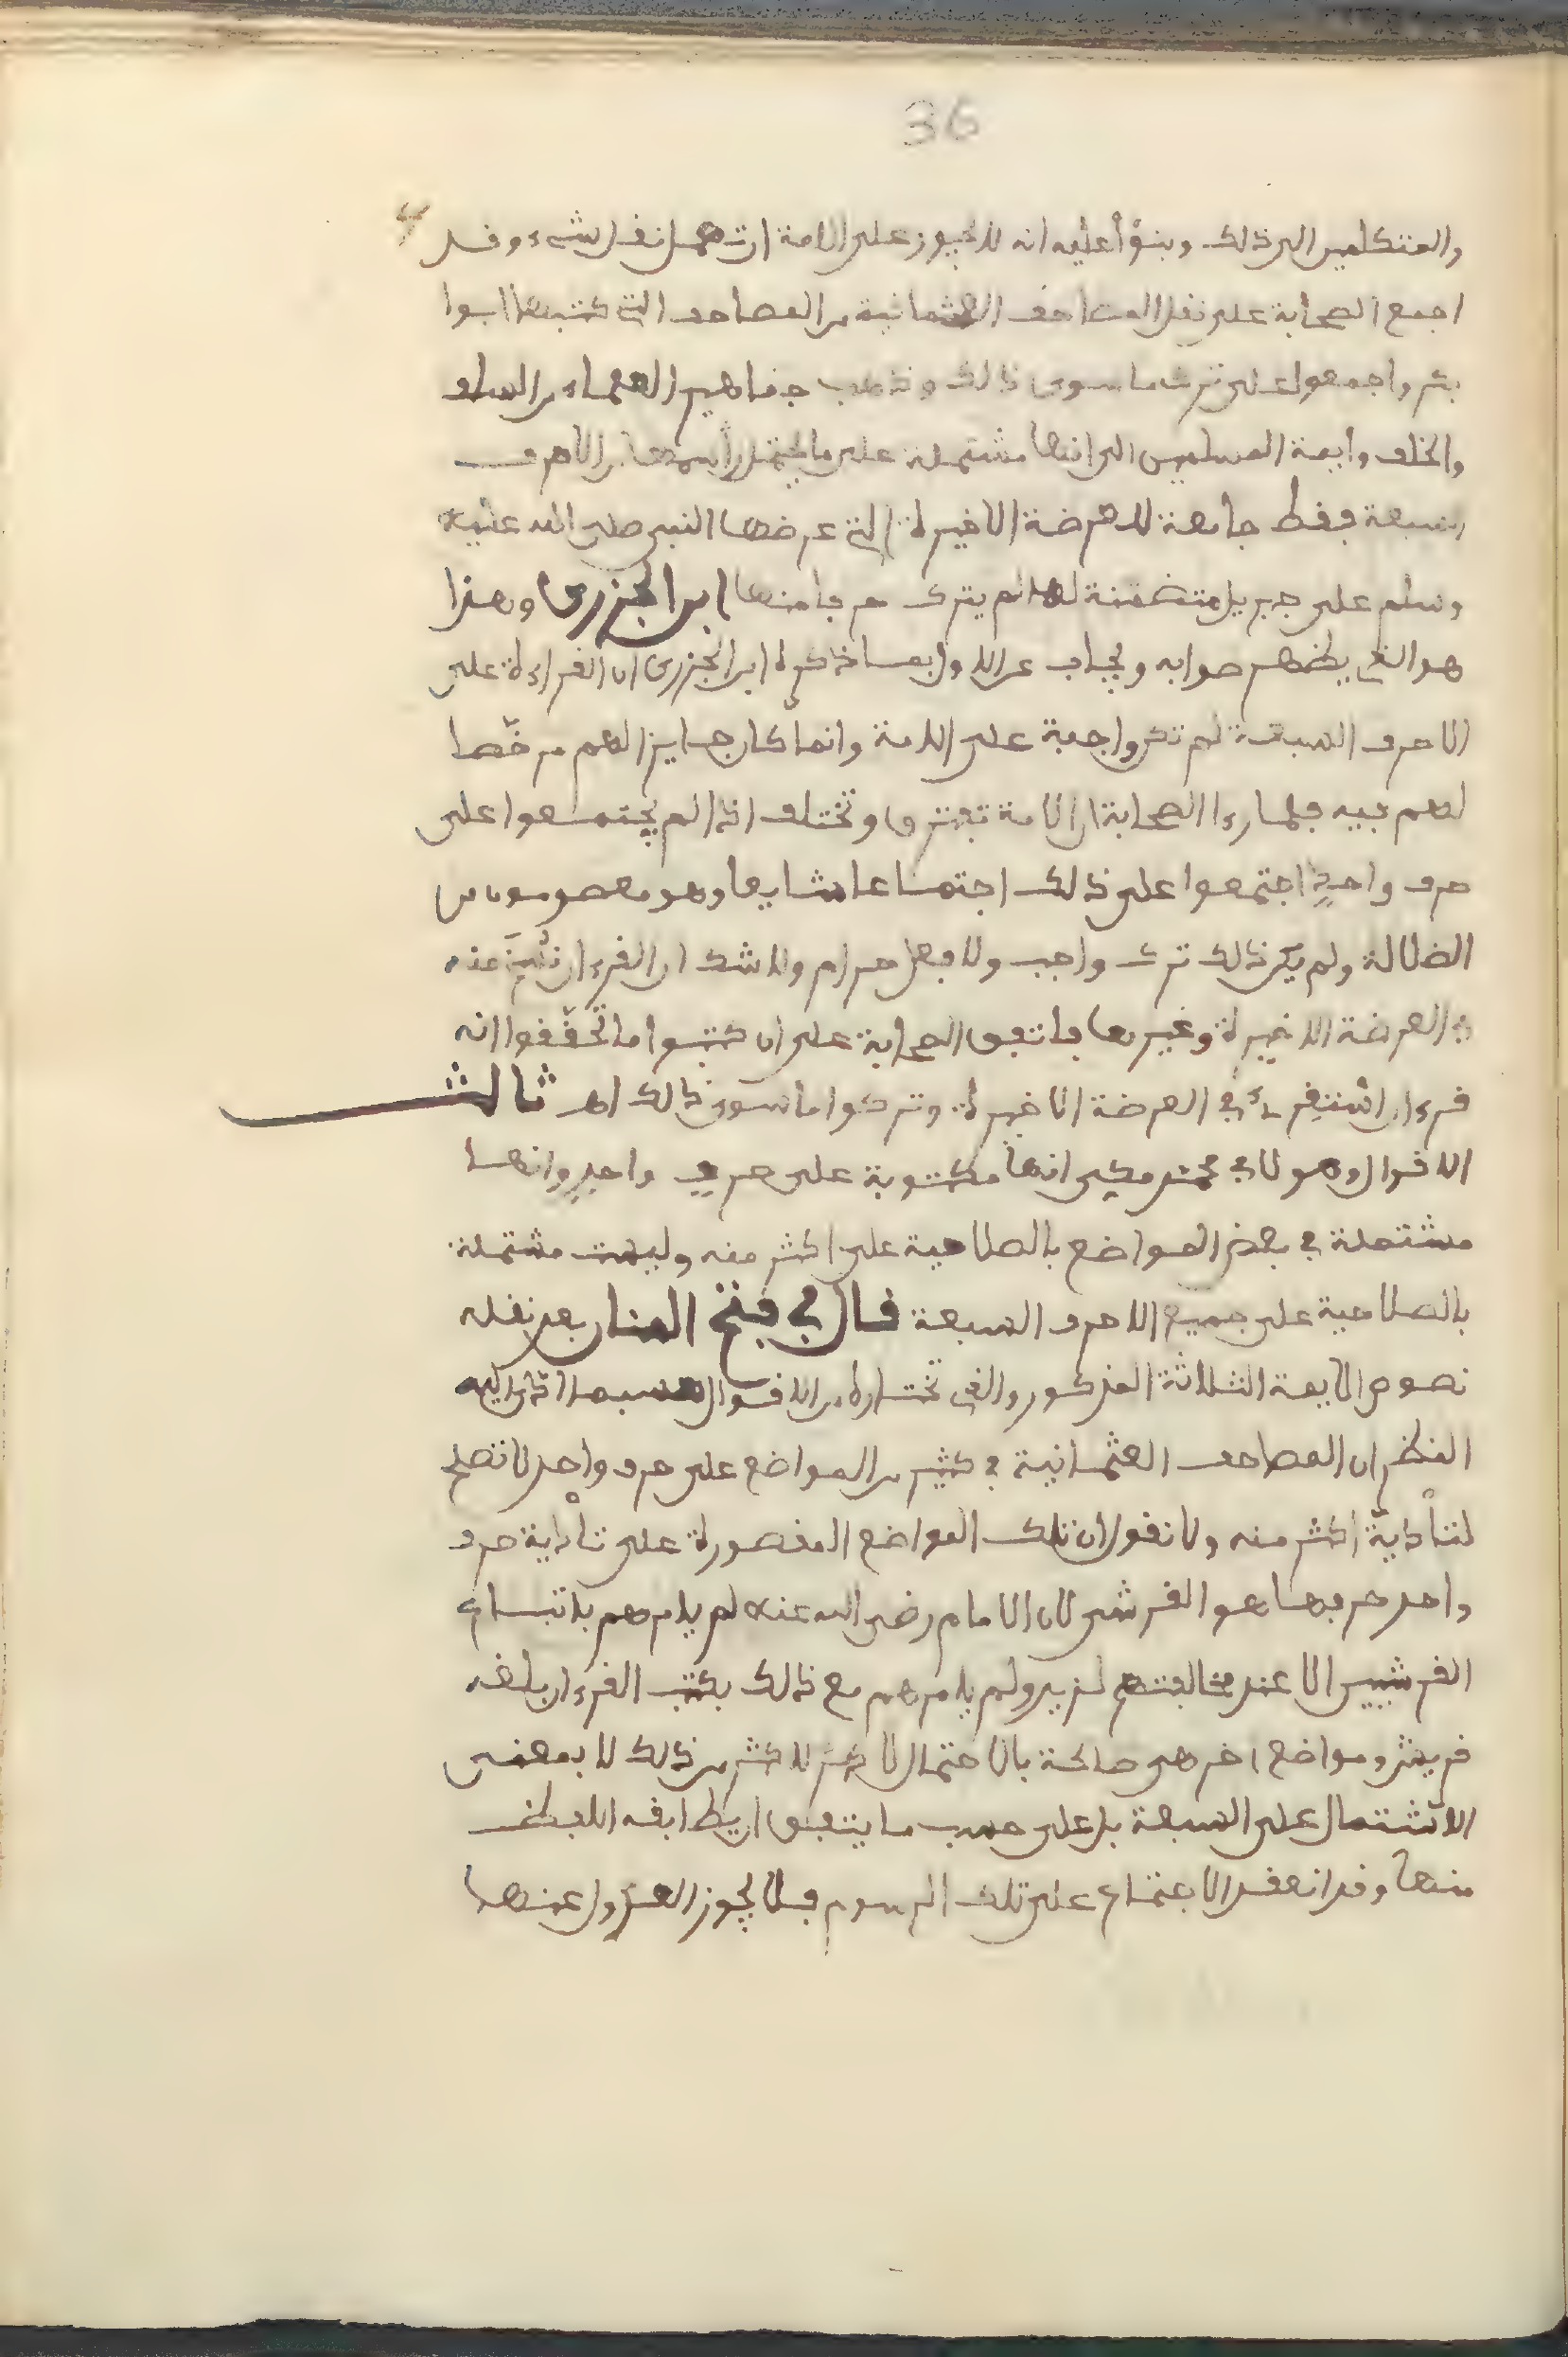 36
والمتكلمين الى ذلك وبنوا عليه انه لا يجوز على الامة ان تهمل نقل شيء وقد
اجمع الصحابة على نقل المصاحف العثمانية من المصاحف التي كتبها ابوا
بكر واجمعوا على ترك ما سوى ذالك وذهب جماهير العلماء من السلف
والخلف وايمة المسلمين الى انها مشتملة على ما يحتمل رسمها من الاحرف
السبعة فقط جامعة للعرضة الاخيرة التي عرضها النبي صلى الله عليه
وسلم على جبريل متضمنة لها لم يترك حرفا منها ابن الجزري وهذا
هو الذي يظهر صوابه ويجاب عن الاول بما ذكره ابن الجزري ان القراءة على
الاحرف السبعة لم تكن واجبة على الامة وانما كان جايزا لهم مرخصا
لهم فيه فلما رءا الصحابة ان الامة تفترق وتختلف اذا لم يجتمعوا على
حرف واحد اجتمعوا على ذلك اجتماعا شايعا وهو معصومون من
الضلالة ولم يكن ذالك ترك واجب ولا فعل حرام ولا شك ان القرءان نسخ منه
في العرضة الاخيرة وغير بها فاتفق الصحابة على ان كتبوا ما تحققوا انه
قرءان استقر في العرضة الاخيرة وتركوا ما سوى ذالك اهـ ثالث
الاقوال وهو لابي محمد مكي انها مكتوبة على حرف واحد وانها
مشتملة في بعض المواضع بالصلاحية على اكثر منه وليست مشتملة
بالصلاحية على جميع الاحرف السبعة قال في فتح المنان بعد نقله
نصوص الايمة الثلاثة المذكور والذي نختاره من الاقوال حسبما اذى اليه
النظر ان المصاحف العثمانية في كثير من المواضع على حرف واحد لا تصلح
لتأدية اكثر منه ولا نقول ان تلك المواضع المقصورة على تأدية حرف
واحد حرفها هو القرشي لان الامام رضي الله عنه لم يامرهم باتباع
القرشيين الا عند مخالفتهم لزيد ولم يامرهم مع ذالك بكتب القرءان بلغة
قريش ومواضع اخر هي صالحة بالاحتمال لاكثر من ذلك لا بمعنى
الاشتمال على السبعة بل على حسب ما يتفق ان يطابقه اللفظ
منها وقد انعقد الاجماع على تلك الرسوم فلا يجوز العدول عنها